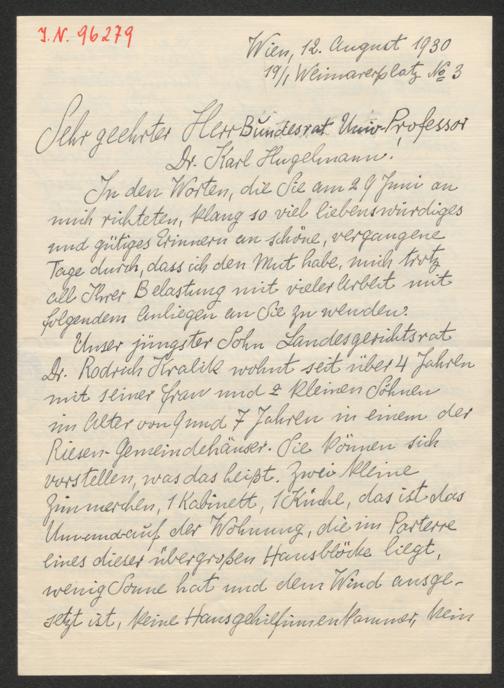 J.N. 96279
Wien, 12. August 1930
19/1 Weimarerplatz № 3
Sehr geehrter Herr Bundesrat Univ. Professor
Dr. Karl Hugelmann!
In den Worten, die Sie am 29 Juni an
mich richteten, klang so viel liebenswürdiges
und gütiges Erinnern an schöne, vergangene
Tage durch, dass ich den Mut habe, mich trotz
all Ihrer Belastung mit vieler Arbeit mit
folgendem Anliegen an Sie zu wenden:
Unser jüngster Sohn Landesgerichtsrat
Dr. Rodrich Kralik wohnt seit über 4 Jahren
mit seiner Frau und 2 kleinen Söhnen
im Alter von 9 und 7 Jahren in einem der
Riesen-Gemeindehäuser. Sie können sich
vorstellen, was das heißt. Zwei kleine
Zimmerchen, 1 Kabinett, 1 Küche, das ist das
Um und auf der Wohnung, die im Parterre
eines dieser übergroßen Hausblöcke liegt,
wenig Sonne hat und dem Wind ausge-
setzt ist, keine Hausgehilfinnenkammer, kein